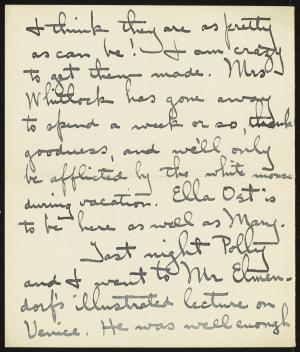 I think they are as pretty
as can be! I am crazy
to get them made. Mrs
Whitlock has gone away
to spend a week or so, thank
goodness, and we'll only
be afflicted by the white mouse
during vacation. Ella Ost is
to be here as well as Mary.
Last night Polly
and I went to Mr Elmen-
dorf's illustrated lecture on
Venice. He was well enough